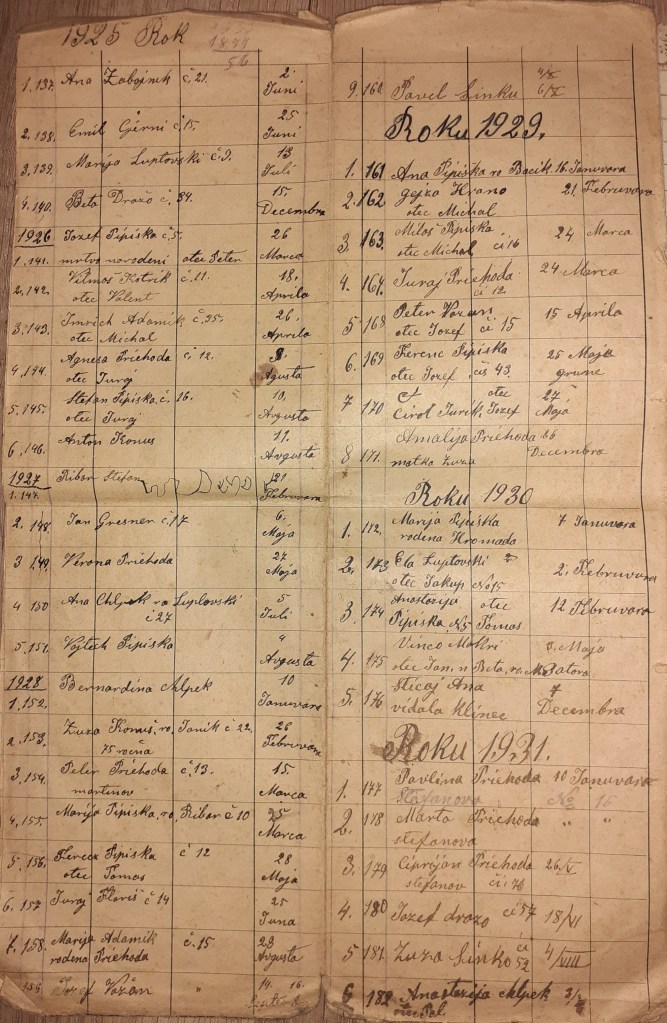 1925 Rok
1.137. Ana Zabojnik č.21. 2. Juni
2.138. Emil Čjerni č.15. 25 Juni
3.139. Marija Luptovski č.9. 13 Juli
4.140. Beta Dražo č. 34. 15. Decembra
1926 Jozef Pipiska č.5. 26
1.141. mrtvo narodeni otec Peter Marca
2.142. Vilmoš Kotrik č.11. 18.
otec Valent Aprila
3.143. Imrich Adamik č.25. 26.
otec Michal Aprila
4.144. Agnesa Priehoda č 12.
otec Juraj Agusta
5.145. Stefan Pipiska č. 16. 10.
otec Juraj Avgusta
6.146. Anton Konus 11. Avgusta
1927 Ribar Stefan 21
1.147. Februvara
2.148. Jan Gresner č.17 6. Maja
3 149. Verona Priehoda 27 Maja
4 150 Ana Chlpek ro Luplovski 5
č 27 Juli
5.151. Vojtech Pipiska " Avgusta
1928 Bernardina Chlpek 10
1.152. Januvara
2.153. Zuza Konuš, ro, Janik č 22. 26
75 ročna Februvara
3.154. Peter Priehoda č.13. 15.
martinov Marca
4.155. Marija Pipiska, ro, Ribar č 10 25 Marca
5.156. Ferecz Pipiska č 12 28
otec Tomas Maja
6.157 Juraj Floriš č 14 25 Juna
7.158. Marija Adamik č.15 23
rodena Priehoda Avgusta
159. Jozef Vozán " 14. 16.
9.160. Pavel Sinku
6/X
Roku 1929.
1. 161 Ana Pipiska ro Bacik 16. Januvara
2. 162 Gejza Hrano 21 Februvara
otec Michal
3. 163 Miloš Pipiska 24 Marca
otec Michal či 16
4. 164. Juraj Priehoda 24 Marca
či 12
5 168 Peter Vozan 15 Aprila
otec Jozef či 15
6. 169 Ferenc Pipiska 25 Maja
otec Jozef čis 43. grune
7 170 Cirol Jurik, otec Jozef 27 Maja
Amalija Priehoda 26
8 171. matka Zuza Decembra
Roku 1930
1. 172. Marija Pipiska 7 Januvara
rodena Hromada
2. 173 Ela Luptovski 2. Februvara
otec Jakup No 15
3. 174 Anastazija otec 12 Februvara
Pipiska No 5 Tomas
4. 175 Vinco Mokri Maja
otec Jan, n Beta, ro,
5. 176 Sticaj Ana 7
vidala Klinec Decembra
Roku 1931.
1. 177 Pavlina Priehoda 10 Januvara
Stefanova No 16
2. 178 Marta Priehoda " "
stefanova
3. 179 Ciprijan Priehoda 26/V
stefanov či 76
4. 180 Jozef drazo či 57 18/VI
5 181. Zuza Sinko či 52 4/VIII
6 182 Anastazija Chlpek